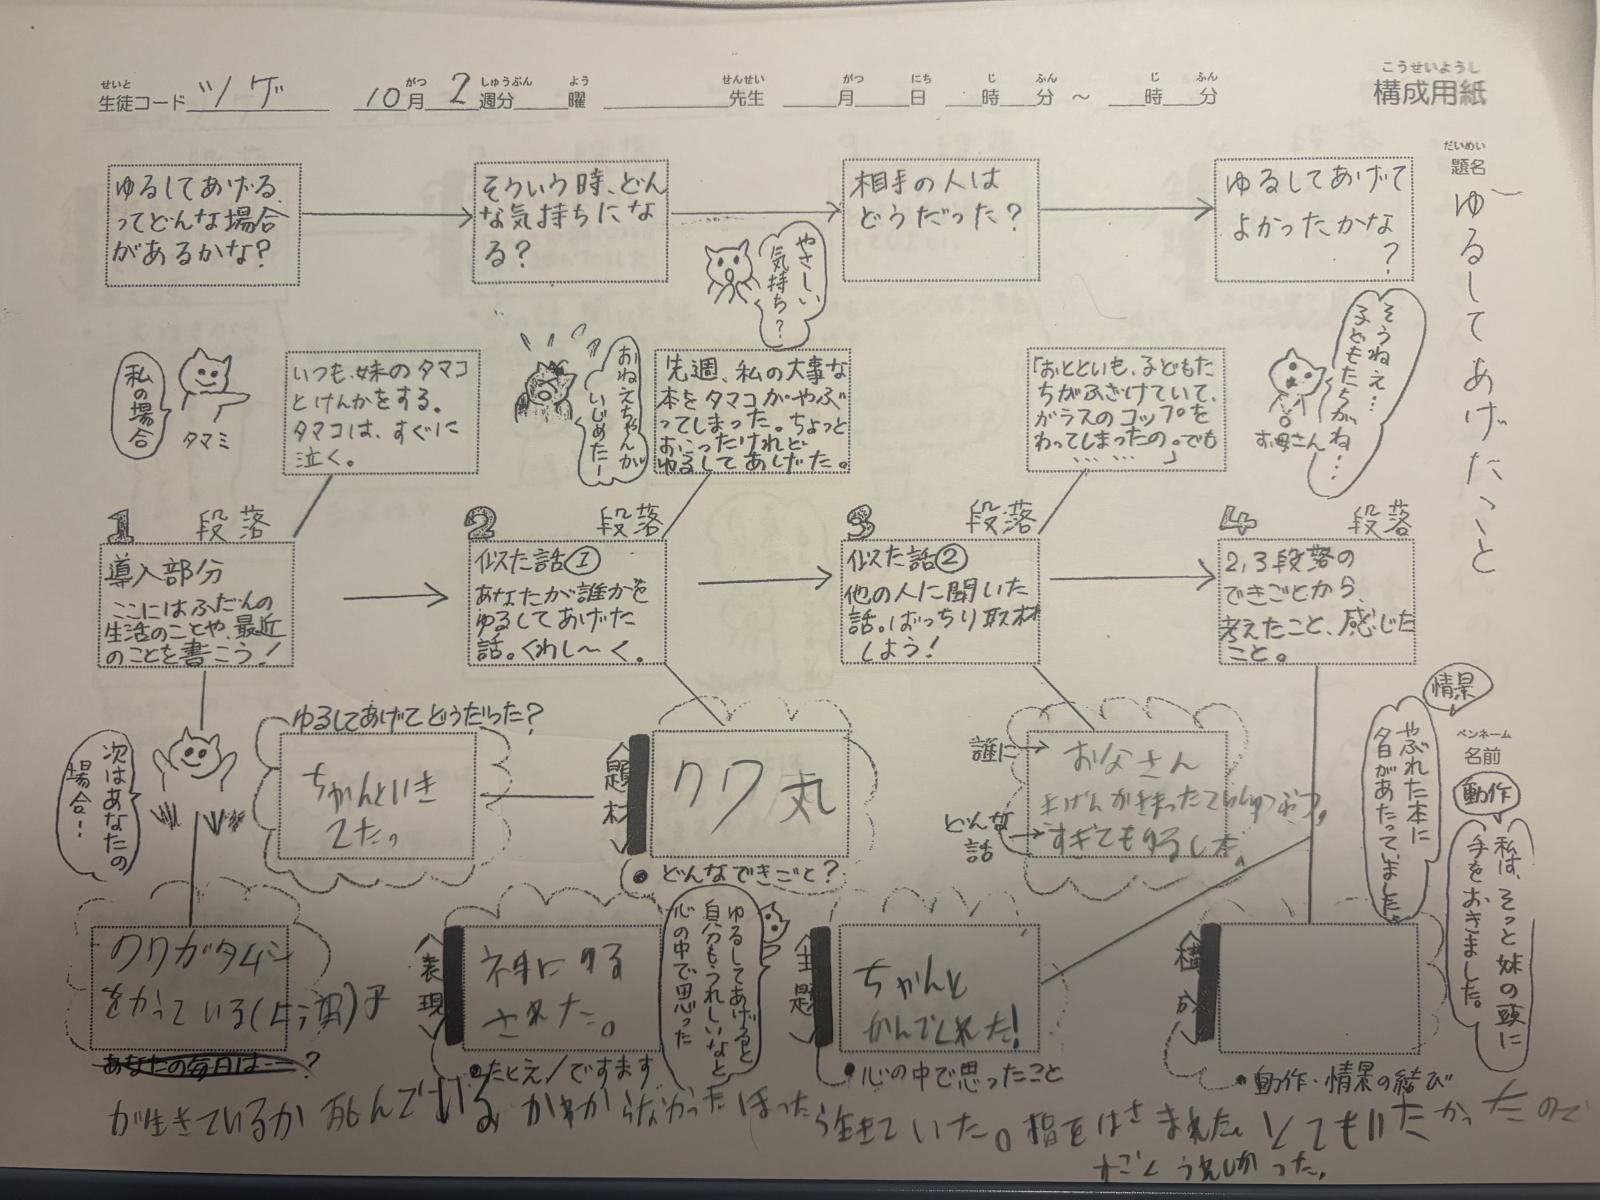 せいと
生徒コード ツゲ
がつ しゅうぶん よう
10月 2週分 曜
せんせい がつ にち じ ふん じ ふん
先生 月 日 時 分 ~ 時 分
こうせいようし
構成用紙
だいめい
題名
ゆるしてあげたこと
ゆるしてあげる、
ってどんな場合
があるかな?
そういう時、どん
な気持ちにな
る?
相手の人は
どうだった?
ゆるしてあげて
よかったかな
?
やさしい
気持ち?
私の場合
タマミ
いつも、妹のタマコ
とけんかをする。
タマコは、すぐに
泣く。
おねえちゃんが
いじめたー
先週、私の大事な
本をタマコがやぶ
ってしまった。ちょっと
おこったけれど
ゆるしてあげた。
「おとといも、子どもた
ちがふざけていて、
ガラスのコップを
わってしまったの。でも
… … …」
お母さん
そうねえ…
子どもたちがね…
1 段落
導入部分
ここにはふだんの
生活のことや、最近
のことを書こう!
2 段落
似た話①
あなたが誰かを
ゆるしてあげた
話。くわし〜く。
3 段落
似た話②
他の人に聞いた
話。ばっちり取材
しよう!
4 段落
2,3段落の
できごとから、
考えたこと、感じた
こと。
次はあなたの
場合!
ゆるしてあげてどうだった?
ちゃんといき
てた。
題材
クワ丸
どんなできごと?
誰に
お父さん
どんな
話
すぎてもゆるし
情景
やぶれた本に
夕日があたっていました。
ペンネーム
名前
動作
私は、そっと妹の頭に
手をおきました。
クワガタムシ
をかっている
あなたの毎日は--?
表現
された。
たとえ/ですます
ゆるしてあげると
自分もうれしいなと
心の中で思った
主題
ちゃんと
かんでくれた!
心の中で思ったこと
構成
動作・情景の結び
が生きているか死んでいるかわからなかった
ら生きていた。指をはさまれた。とてもいたかったので
すごくうれしかった。